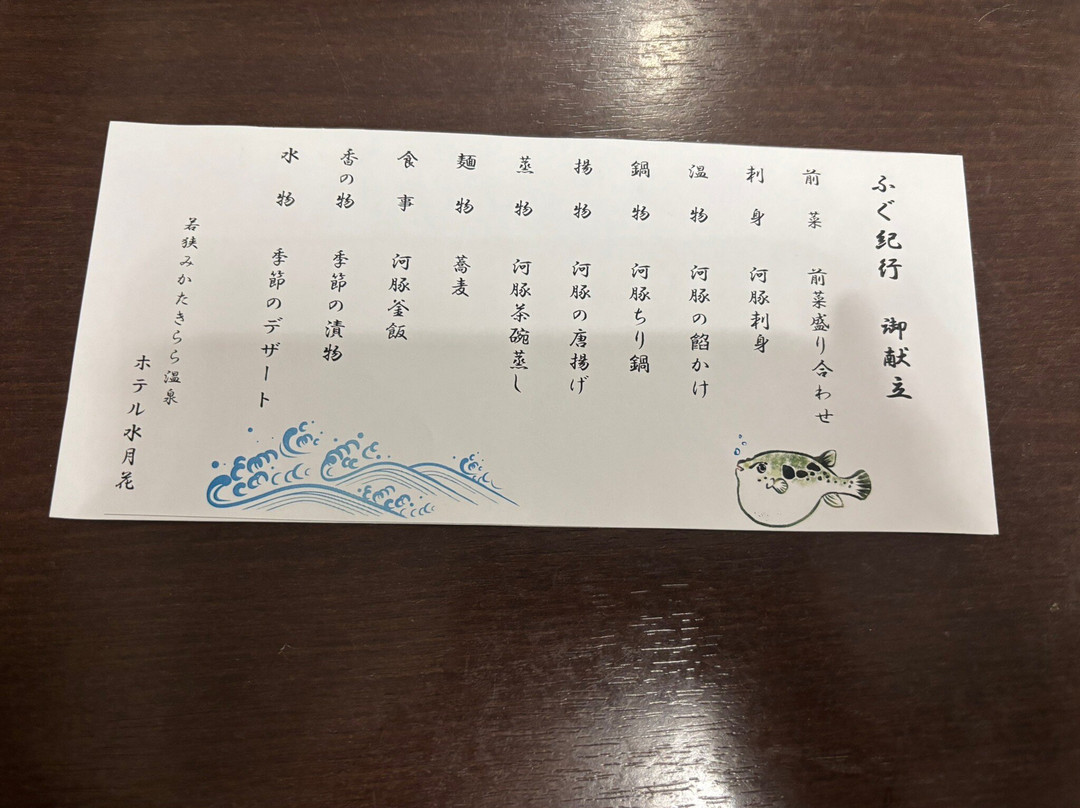 ふぐ紀行 御献立
前菜 前菜盛り合わせ
刺身 河豚刺身
温物 河豚の餡かけ
鍋物 河豚ちり鍋
揚物 河豚の唐揚げ
蒸物 河豚茶碗蒸し
麺物 蕎麦
食事 河豚釜飯
香の物 季節の漬物
水物 季節のデザート
若狭みかたきらら温泉
ホテル水月花